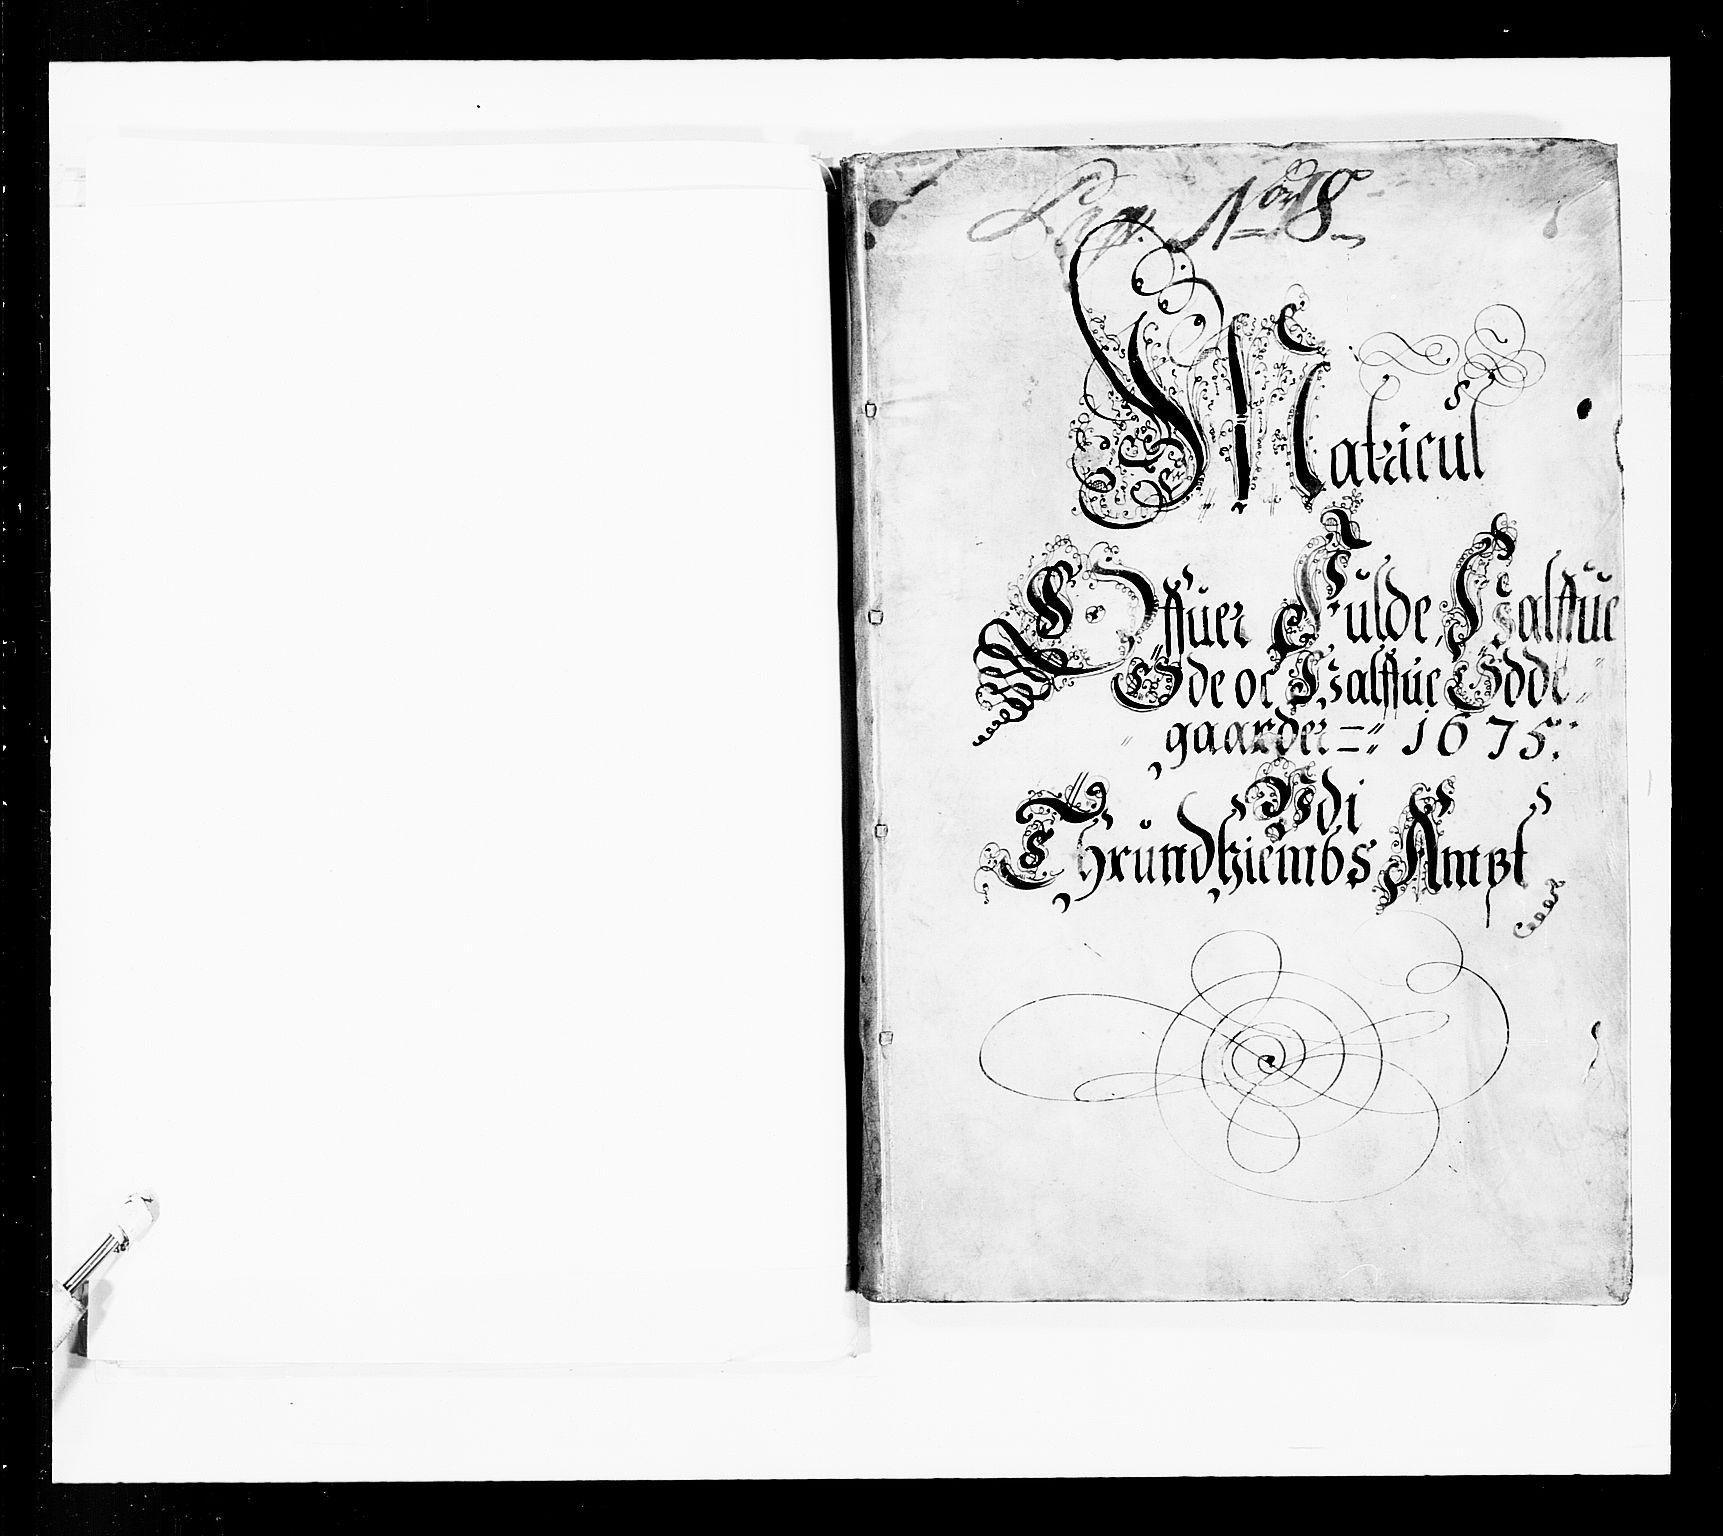 No 8
Matricul
Offuer Fulde, Halffue
Øde oc Halffue Ødde
gaarder =:" 1675.
Udi
Thrundhiembs Ampt